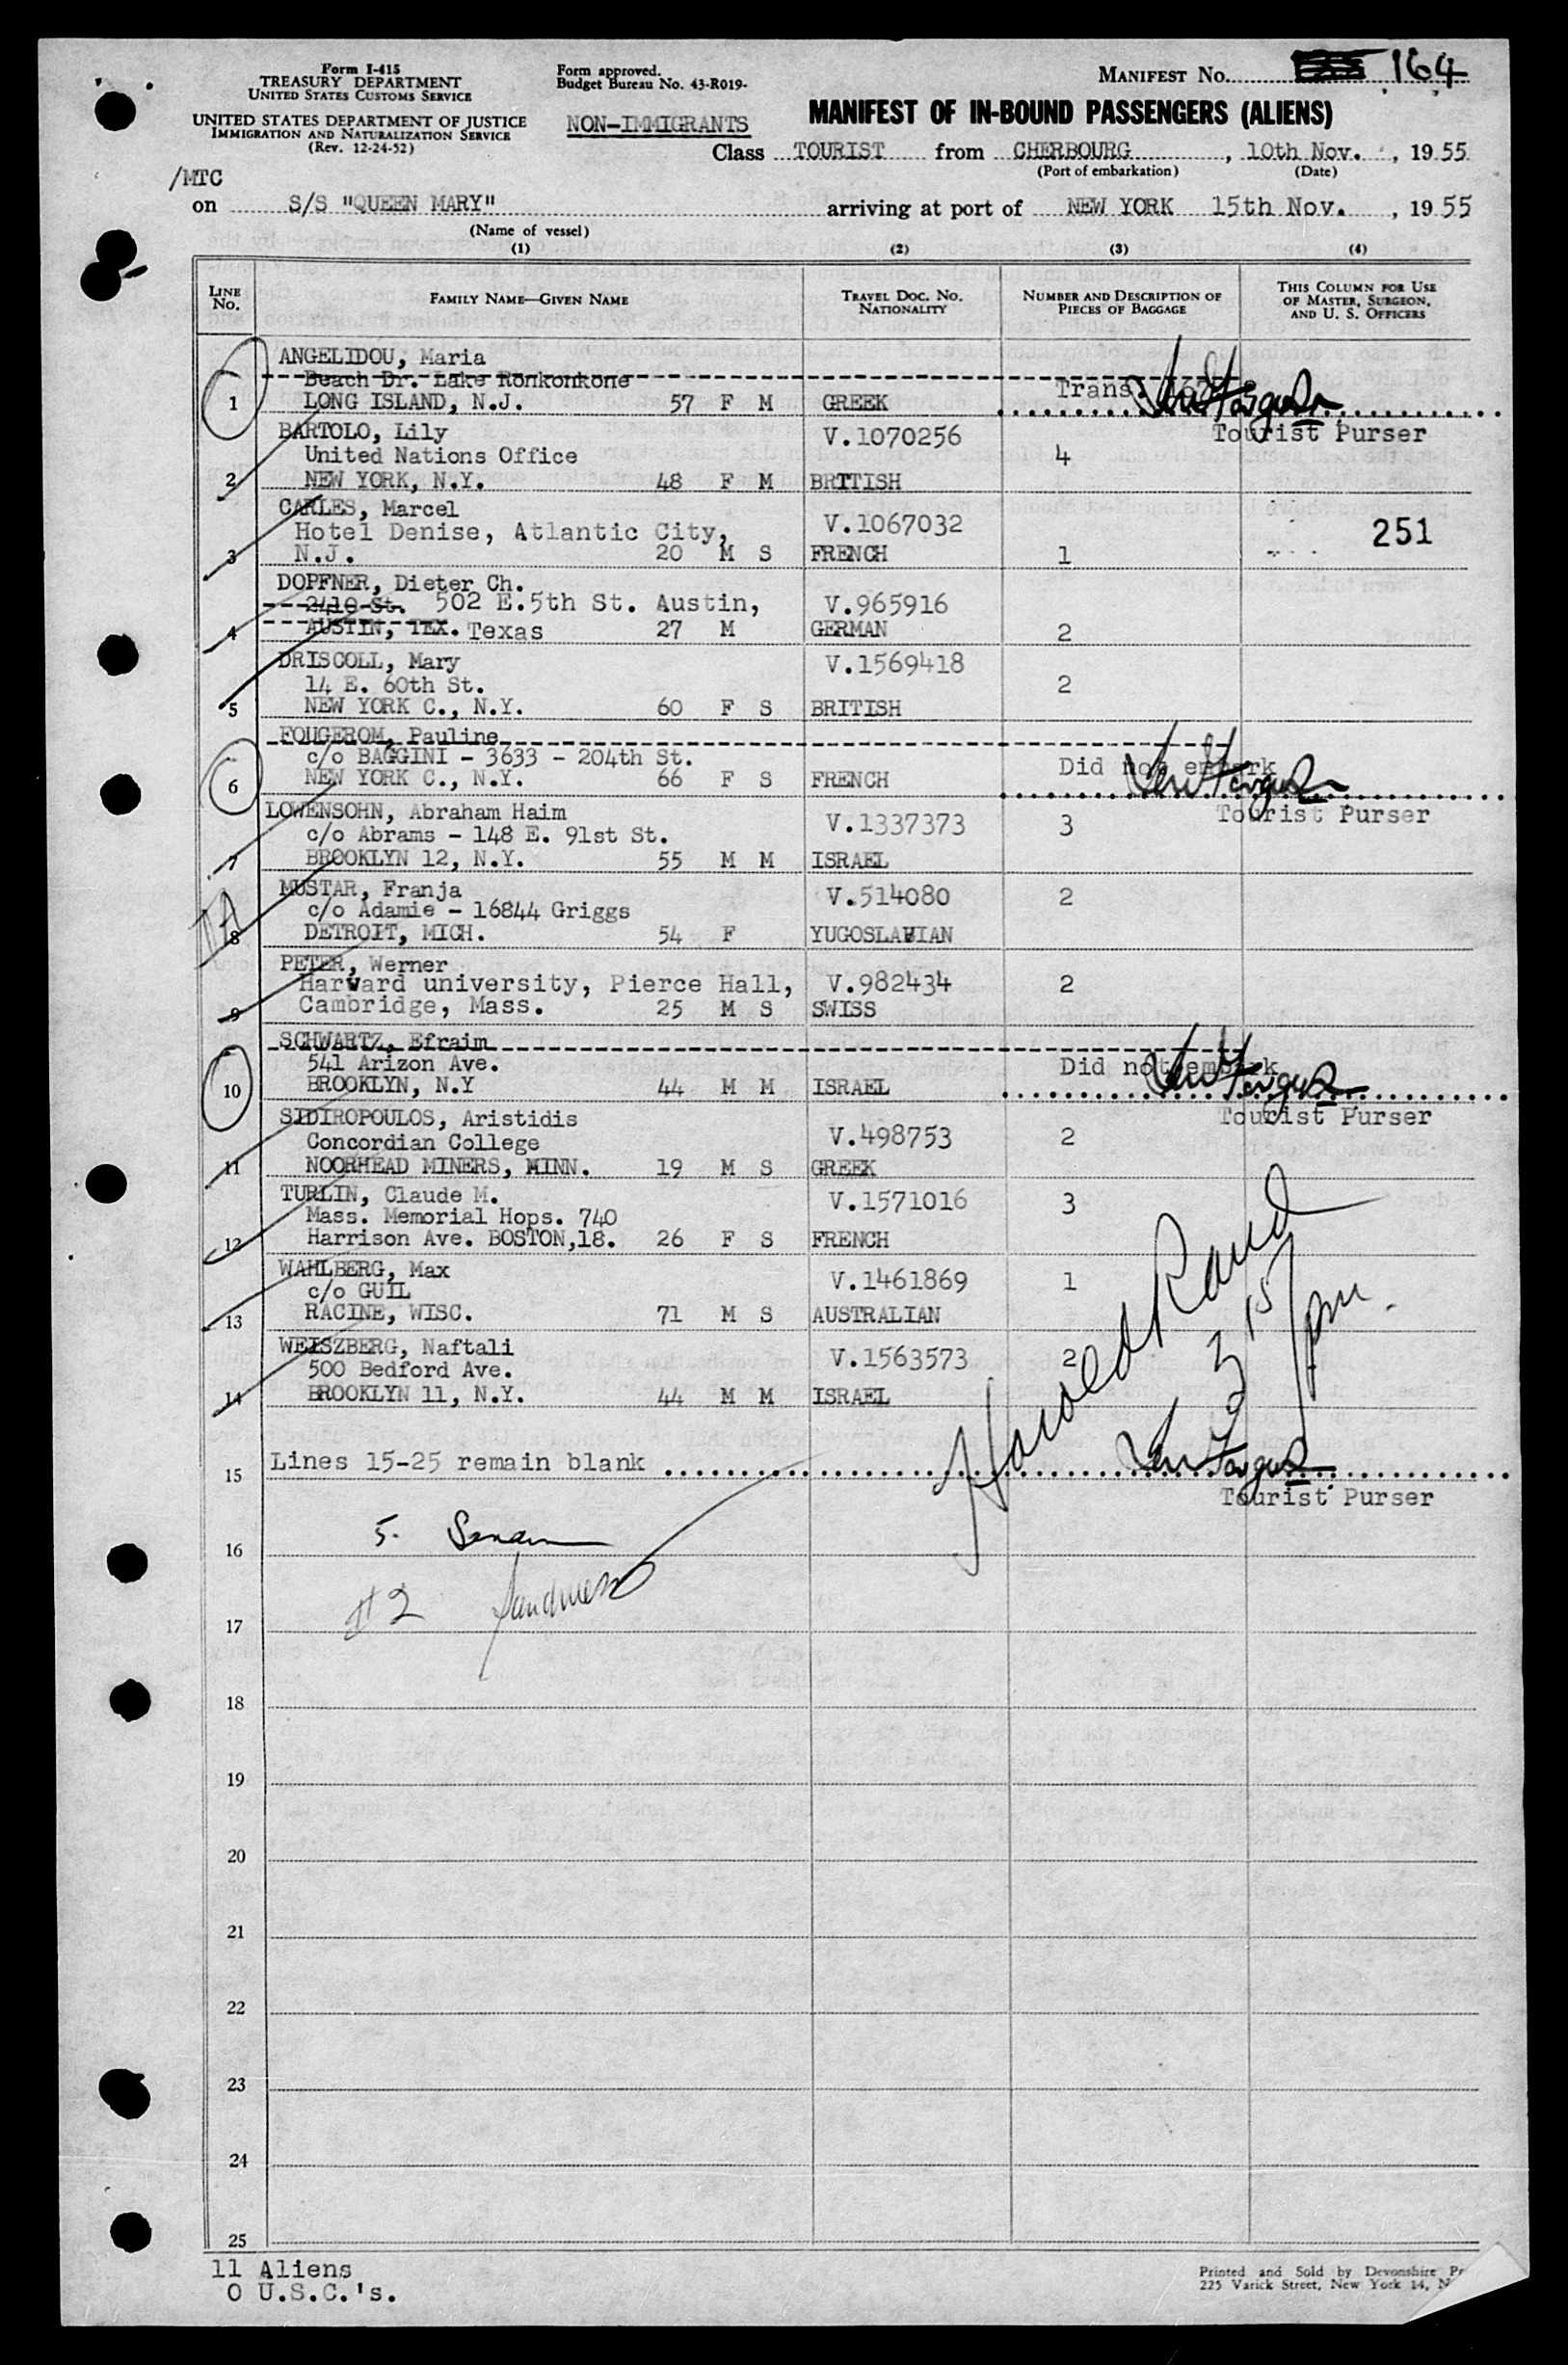 Form I-415
TREASURY DEPARTMENT
UNITED STATES CUSTOMS SERVICE
UNITED STATES DEPARTMENT OF JUSTICE
IMMIGRATION AND NATURALIZATION SERVICE
(Rev. 12-24-52)
Form approved.
Budget Bureau No. 43-R019-
NON-IMMIGRANTS
MANIFEST NO. 164
MANIFEST OF IN-BOUND PASSENGERS (ALIENS)
Class TOURIST from CHERBOURG, 10th Nov., 1955
(Port of embarkation) (Date)
/MTC
on S/S "QUEEN MARY" arriving at port of NEW YORK 15th Nov., 1955
(Name of vessel)
(1) (2) (3) (4)
LINE NO. FAMILY NAME—GIVEN NAME TRAVEL DOC. NO. NATIONALITY NUMBER AND DESCRIPTION OF PIECES OF BAGGAGE THIS COLUMN FOR USE OF MASTER, SURGEON, AND U. S. OFFICERS
ANGELIDOU, Maria
Beach Dr. Lake Ronkonkone Trans.
1 LONG ISLAND, N.J. 57 F M GREEK
Tourist Purser
BARTOLO, Lily V.1070256
United Nations Office 4
2 NEW YORK, N.Y. 48 F M BRITISH
CARLES, Marcel V.1067032
Hotel Denise, Atlantic City, 251
3 N.J. 20 M S FRENCH 1
DOPFNER, Dieter Ch.
2410 St. 502 E.5th St. Austin, V.965916
4 AUSTIN, TEX. Texas 27 M GERMAN 2
DRISCOLL, Mary V.1569418
14 E. 60th St. 2
5 NEW YORK C., N.Y. 60 F S BRITISH
FOUGEROM, Pauline
c/o BAGGINI - 3633 - 204th St. Did not embark
6 NEW YORK C., N.Y. 66 F S FRENCH
Tourist Purser
LOWENSOHN, Abraham Haim V.1337373 3
c/o Abrams - 148 E. 91st St.
7 BROOKLYN 12, N.Y. 55 M M ISRAEL
MUSTAR, Franja V.514080 2
c/o Adamie - 16844 Griggs
8 DETROIT, MICH. 54 F YUGOSLAVIAN
PETER, Werner
Harvard university, Pierce Hall, V.982434 2
9 Cambridge, Mass. 25 M S SWISS
SCHWARTZ, Efraim
541 Arizon Ave. Did not embark
10 BROOKLYN, N.Y 44 M M ISRAEL
Tourist Purser
SIDIROPOULOS, Aristidis V.498753 2
Concordian College
11 NOORHEAD MINERS, MINN. 19 M S GREEK
TURLIN, Claude M. V.1571016 3
Mass. Memorial Hops. 740
12 Harrison Ave. BOSTON,18. 26 F S FRENCH
WAHLBERG, Max V.1461869 1
c/o GUIL
13 RACINE, WISC. 71 M S AUSTRALIAN
WEISZBERG, Naftali V.1563573 2
500 Bedford Ave.
14 BROOKLYN 11, N.Y. 44 M M ISRAEL
Harold Rand
3 15 pm.
15 Lines 15-25 remain blank
Tourist Purser
16 5.
17 #2
18
19
20
21
22
23
24
25
11 Aliens
0 U.S.C.'s.
Printed and Sold by Devonshire
225 Varick Street, New York 14,